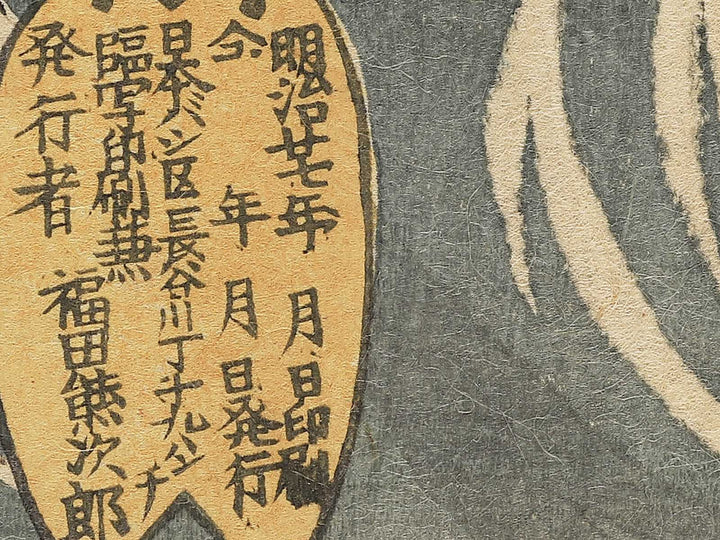 明治廿七年 月 日印刷
仝 年 月 日発行
日本ハシ区長谷川丁十九バンチ
臨写印刷兼
発行者 福田熊次郎